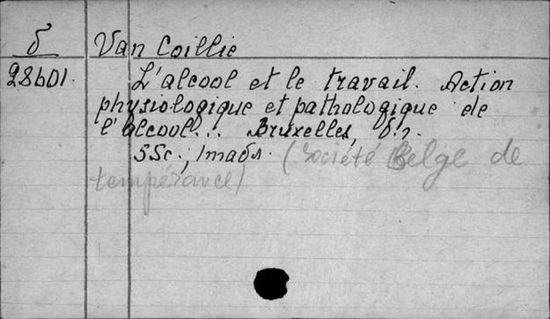 δ Van Coillie
28601. L'alcool et le travail. Action
physiologique et pathologique de
l'alcool... Bruxelles,
SSc.; (Société Belge de
tempérance)